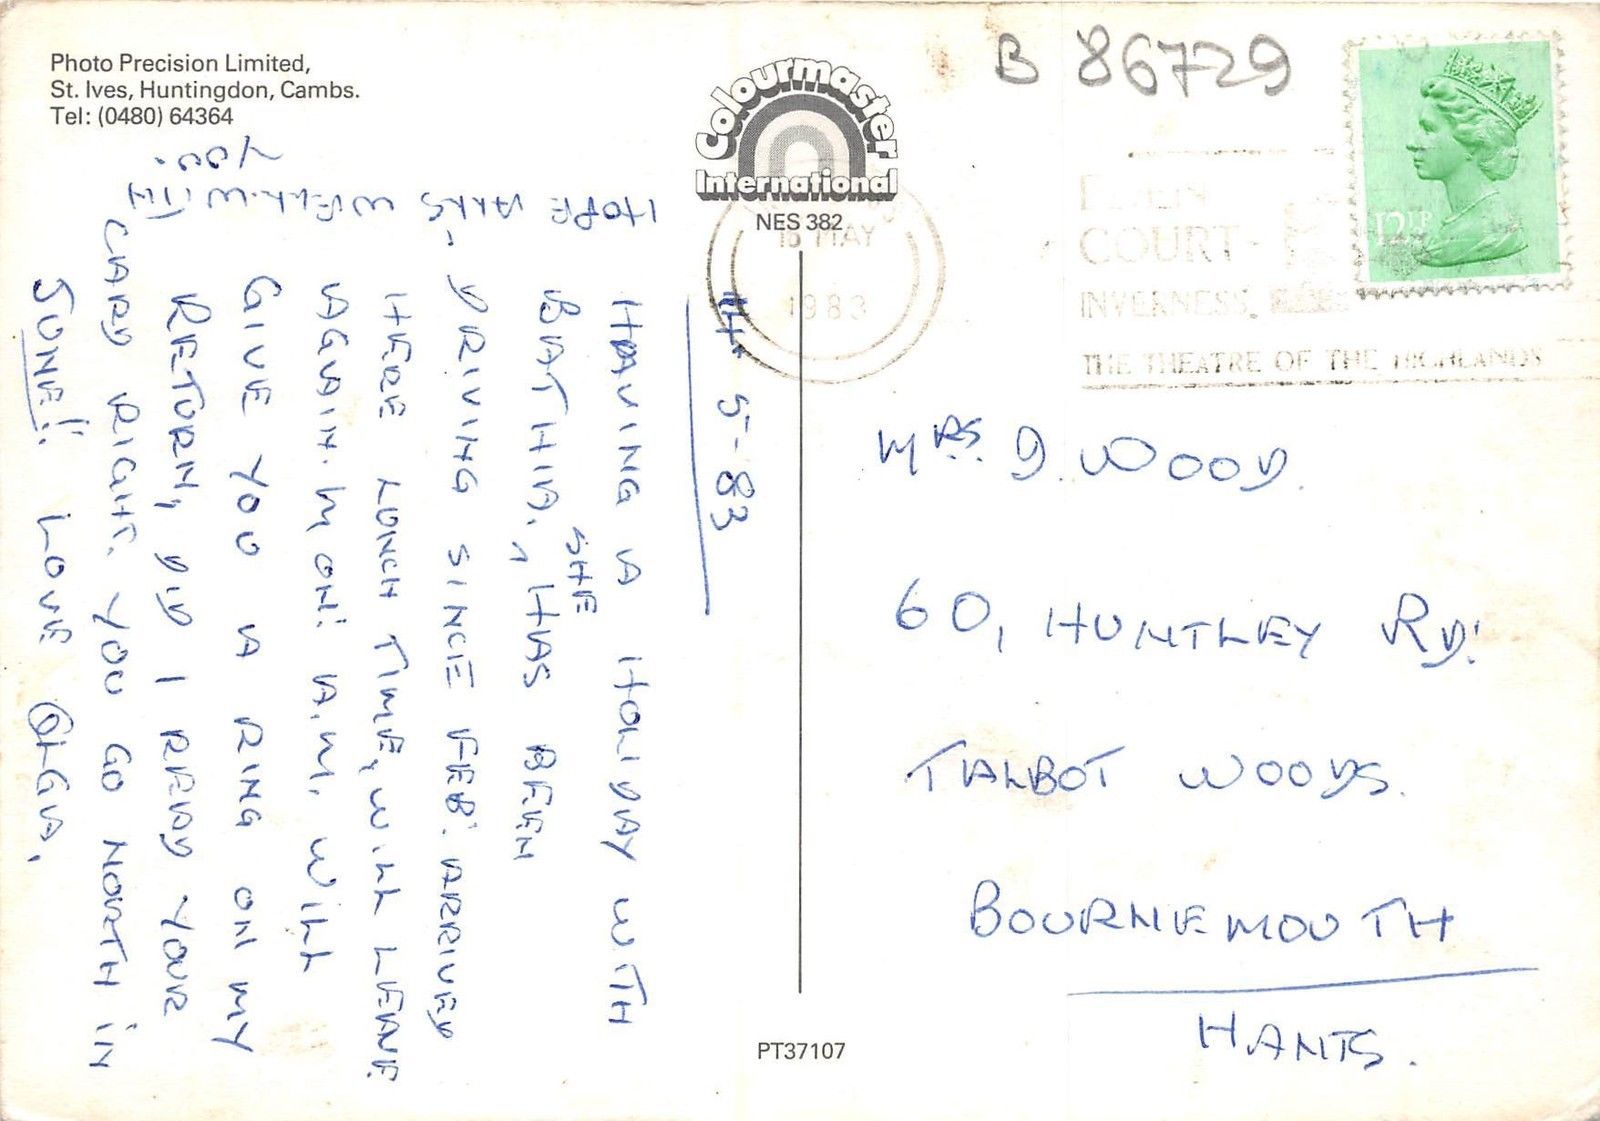 Photo Precision Limited,
St. Ives, Huntingdon, Cambs.
Tel: (0480) 64364
Colourmaster
International
NES 382
B 86729
12½P
16 MAY
1983
EDEN
COURT -
INVERNESS.
THE THEATRE OF THE HIGHLANDS
14-5-83
HAVING A HOLIDAY WITH
BATHIA, SHE HAS BEEN
DRIVING SINCE FEB. ARRIVED
HERE LUNCH TIME, WILL LEAVE
AGAIN. MON: A.M. WILL
GIVE YOU A RING ON MY
RETURN, DID I READ YOUR
CARD RIGHT. YOU GO NORTH IN
JUNE!! LOVE OLGA.
HOPE ALLS WELL WITH
YOU.
MRS. D. WOOD.
60, HUNTLEY RD:
TALBOT WOODS.
BOURNEMOUTH
HANTS.
PT37107